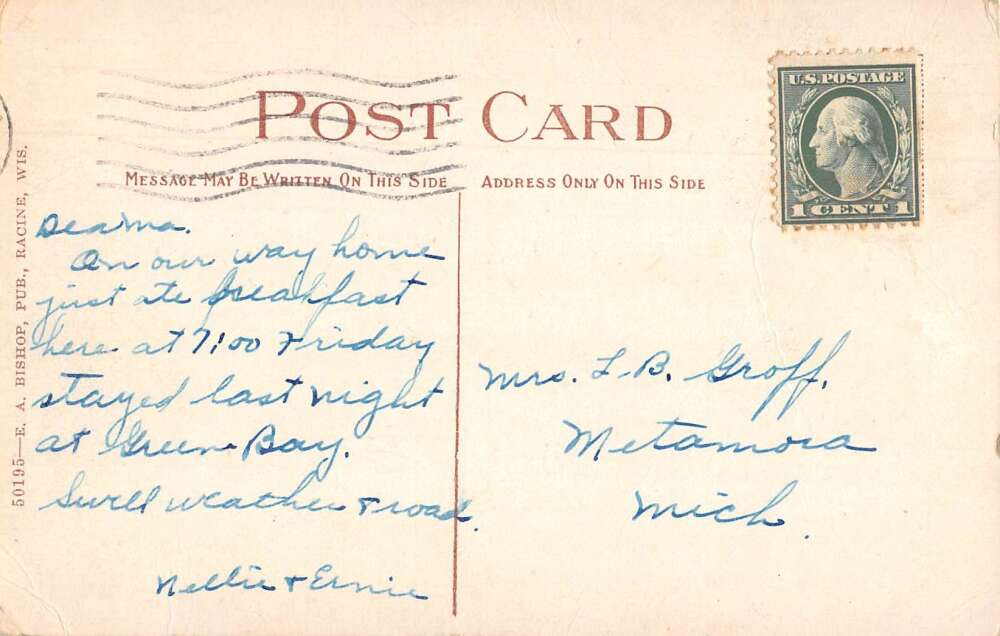 POST CARD
MESSAGE MAY BE WRITTEN ON THIS SIDE
ADDRESS ONLY ON THIS SIDE
U.S. POSTAGE
1 CENT 1
50195—E. A. BISHOP, PUB., RACINE, WIS.
Dear Ma.
On our way home
just ate breakfast
here at 7:00 Friday
stayed last night
at Green Bay.
Swell weather & road.
Nellie & Ernie
Mrs. L. B. Groff.
Metamora
Mich.